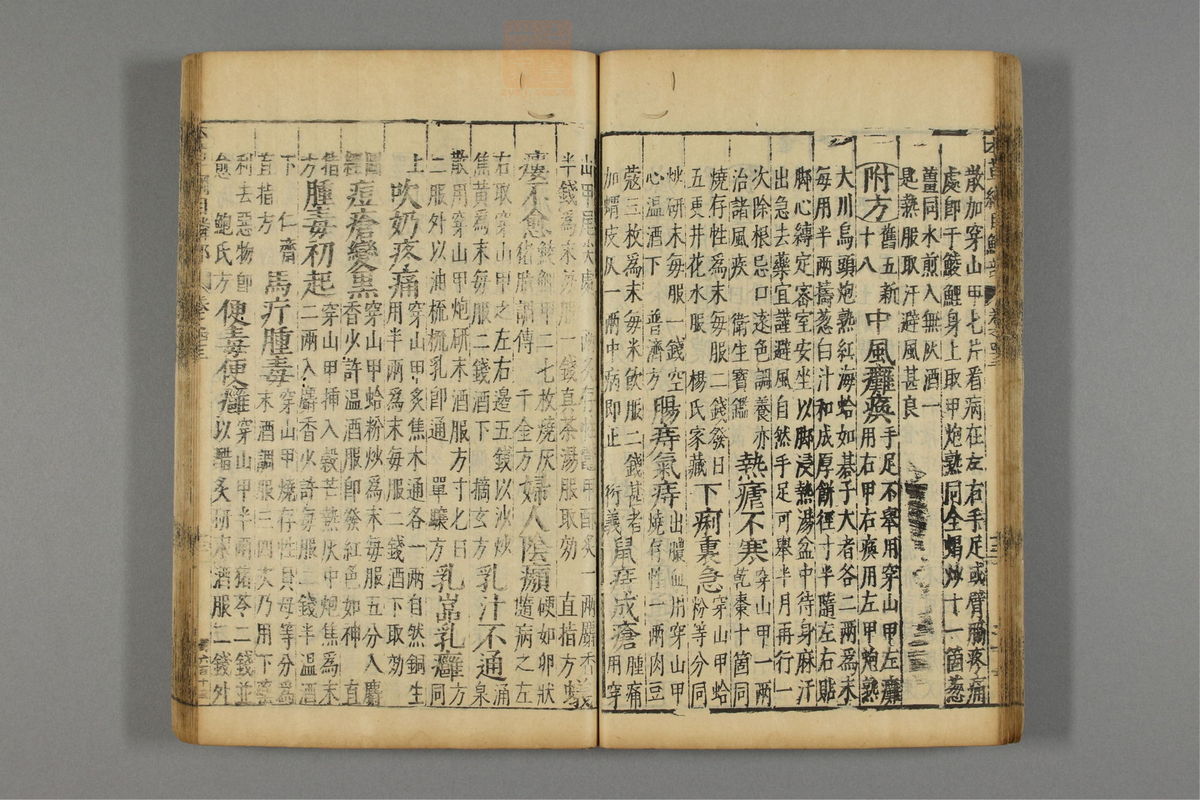 散加穿山甲七片看病在左右手足或臂脇疼痛
處卽于鯪鯉身上取甲炮熟同全蝎炒十一箇葱
薑同水煎入無灰酒一
匙熱服取汗避風甚良
附方舊五新十八 中風癱瘓手足不舉用穿山甲左癱
用右甲右瘓用左甲炮熟
大川烏頭炮熟紅海蛤如棊子大者各二兩爲末
每用半兩擣葱白汁和成厚餅徑寸半隨左右貼
脚心縛定密室安坐以脚浸熱湯盆中待身麻汗
出急去藥宜謹避風自然手足可舉半月再行一
次除根忌口遠色調養亦
治諸風疾 衛生寶鑑 熱瘧不寒穿山甲一兩
乾棗十箇同
燒存性爲末每服二錢發日
五更井花水服 楊氏家藏 下痢裏急穿山甲蛤
粉等分同
炒研末每服一錢空
心溫酒下 普濟方 腸痔氣痔出膿血用穿山甲
燒存性一兩肉豆
蔻三枚爲末每米飲服二錢甚者
加蝟皮灰一兩中病卽止 衍義 鼠痔成瘡腫痛
用穿
山甲尾尖處一兩炙存性鼈甲酥炙一兩麝香
半錢爲末每服一錢眞茶湯服取効 直指方 蟻
瘻不愈鯪鯉甲二七枚燒灰
猪脂調傅 千金方 婦人陰㿗硬如卵狀
隨病之左
右取穿山甲之左右邊五錢以沙炒
焦黃爲末每服二錢酒下 摘玄方 乳汁不通涌泉
散用穿山甲炮研末酒服方寸匕日
二服外以油梳梳乳卽通 單驤方 乳巖乳癰方同
上 吹奶疼痛穿山甲炙焦木通各一兩自然銅生
用半兩爲末每服二錢酒下取効
痘瘡變黑穿山甲蛤粉炒爲末每服五分入麝
香少許溫酒服卽發紅色如神 直
指方 腫毒初起穿山甲揷入穀芒熱灰中炮焦爲末
二兩入麝香少許每服二錢半溫酒
下 仁齋
直指方 馬疔腫毒穿山甲燒存性貝母等分爲
末酒調服三四次乃用下藥
利去惡物卽
愈 鮑氏方 便毒便癰穿山甲半兩猪苓二錢並
以醋炙研末酒服二錢外